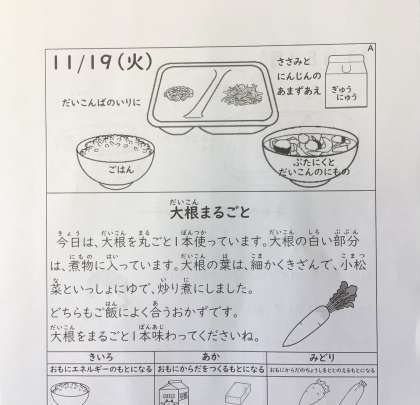 A
11/19(火)
ささみと
にんじんの
あまずあえ
ぎゅう
にゅう
だいこんばのいりに
ごはん
ぶたにくと
だいこんのにもの
大根まるごと
今日は、大根を丸ごと1本使っています。大根の白い部分
は、煮物に入っています。大根の葉は、細かくきざんで、小松
菜といっしょにゆで、炒り煮にしました。
どちらもご飯によく合うおかずです。
大根をまるごと1本味わってくださいね。
きいろ あか みどり
おもにエネルギーのもとになる おもにからだをつくるもとになる おもにからだのちょうしをととのえるもとになる